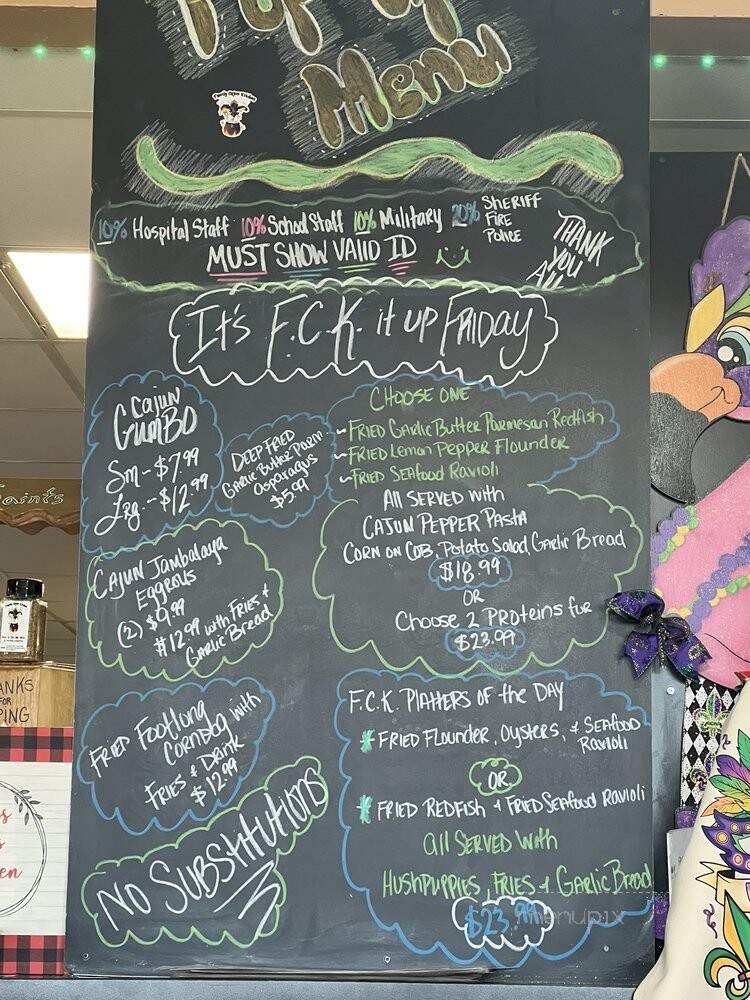 Pop up
Menu
10% Hospital Staff 10% School Staff 10% Military 20% Sheriff
Fire
Police
MUST SHOW VALID ID
THANK
YOU
All
It's F.C.K. it up FRIDAY
Cajun
GUMBO
Sm - $7.99
Lrg. - $12.99
DEEP FRIED
Garlic Butter Parm
Asparagus
$5.99
CHOOSE ONE
~FRIED GARLIC Butter Parmesan Redfish
~FRIED Lemon Pepper Flounder
~FRIED SEAfood Ravioli
All SERVED with
CAJUN PEPPER PASTA
CORN on COB, Potato Salad, Garlic Bread
$18.99
OR
Choose 2 PROteins for
$23.99
CAJUN Jambalaya
Eggrolls
(2) $9.99
$12.99 with FRIES &
GARLIC BREAD
FRIED Footlong
CORNDOG with
FRIES & DRINK
$12.99
NO SUBSTITUTIONS
F.C.K. PlAtteRS of the DAY
* FRIED Flounder, Oysters, & SEAfood
Ravioli
OR
* FRIED REDFISH & FRIED SEAfood Ravioli
All SERVED With
HUSHPUPPIES, FRIES & GARLIC BREAD
$23.99
menupix
aints
ANKS
FOR
PING
en